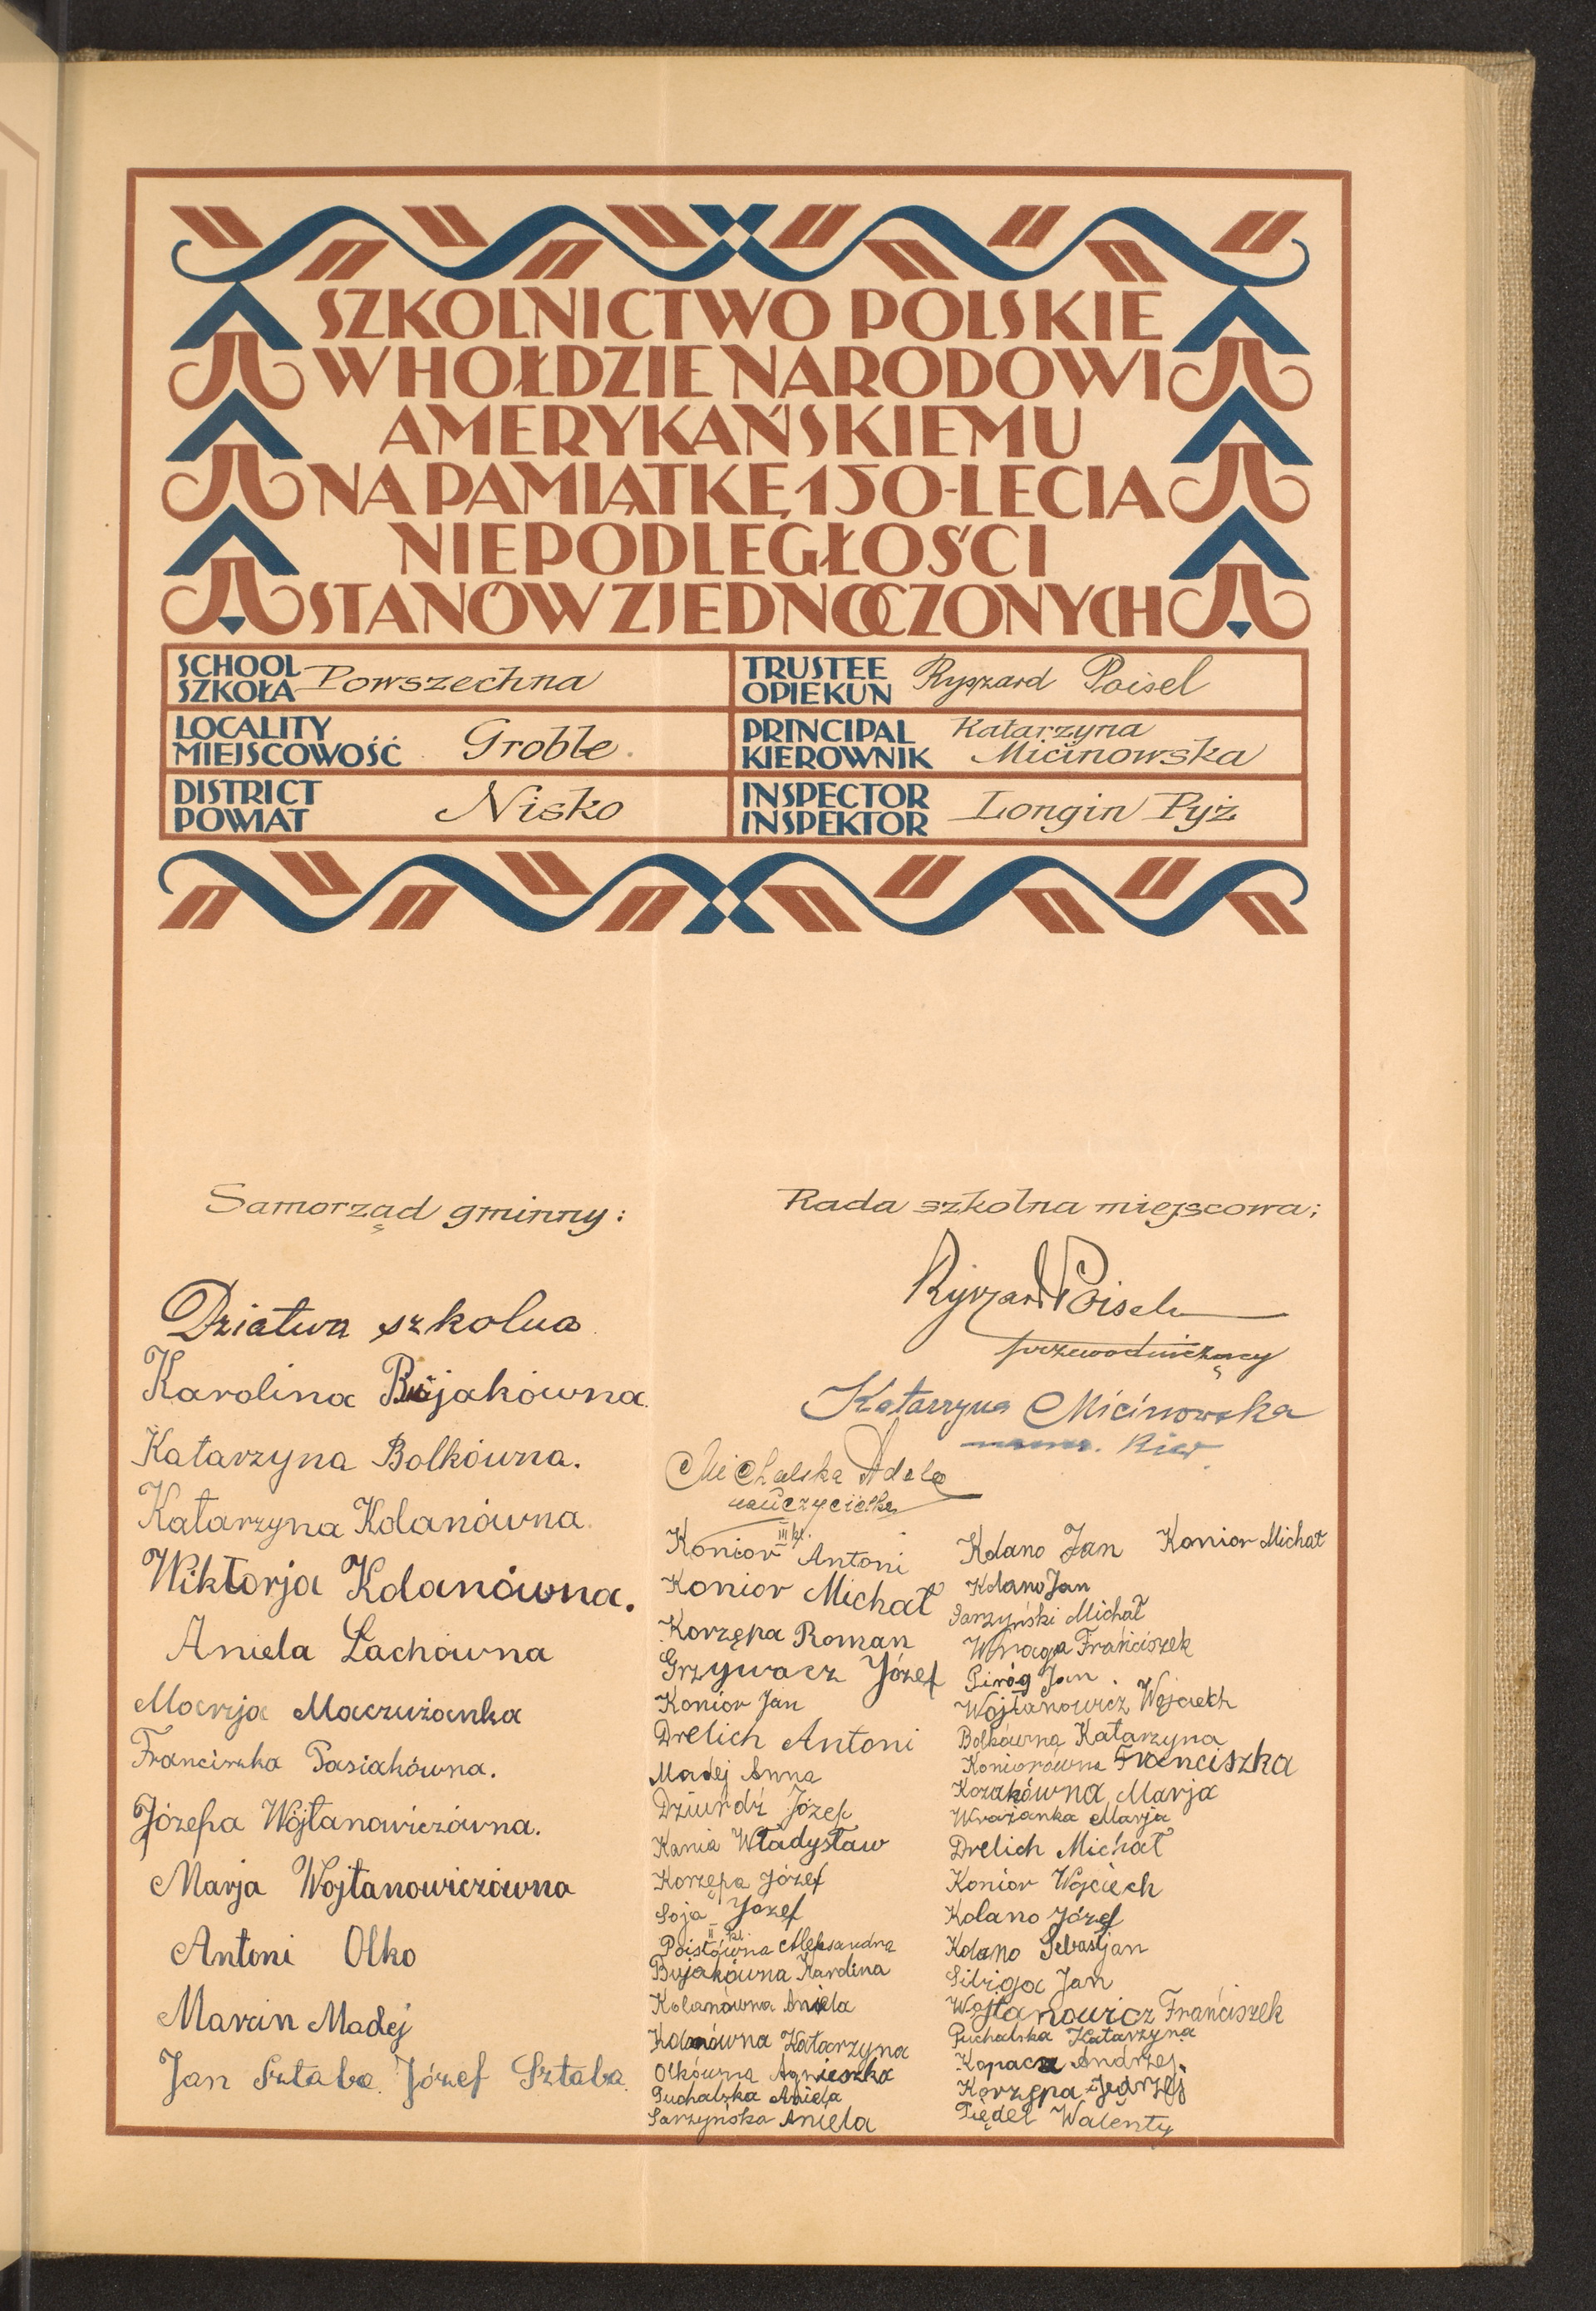 SZKOLNICTWO POLSKIE
W HOŁDZIE NARODOWI
AMERYKAŃSKIEMU
NA PAMIĄTKĘ 150-LECIA
NIEPODLEGŁOŚCI
STANÓW ZJEDNOCZONYCH
SCHOOL
SZKOŁA Powszechna
TRUSTEE
OPIEKUN Ryszard Poisel
LOCALITY
MIEJSCOWOŚĆ Groble.
PRINCIPAL
KIEROWNIK Katarzyna
Micinowska
DISTRICT
POWIAT Nisko
INSPECTOR
INSPEKTOR Longin Pyż
Samorząd gminny:
Dziatwa szkolna
Karolina Bujakówna.
Katarzyna Bolkówna.
Katarzyna Kolanówna.
Wiktorja Kolanówna.
Aniela Lachówna
Marja Maczużanka
Franciszka Pasiakówna.
Józefa Wojtanowiczówna.
Marja Wojtanowiczówna
Antoni Olko
Marcin Madej
Jan Sztaba. Józef Sztaba.
Rada szkolna miejscowa:
Ryszard Poisel
przewodniczący
Katarzyna Micinowska
kier.
Michalska Adela
nauczycielka
III kl.
Konior Antoni
Konior Michał
Korzępa Roman
Grzywacz Józef
Konior Jan
Drelich Antoni
Madej Anna
Dziurdź Józef
Kania Władysław
Korzępa Józef
Soja Józef
II kl.
Poislówna Aleksandra
Bujakówna Karolina
Kolanówna Aniela
Kolanówna Katarzyna
Olkówna Agnieszka
Puchalska Aniela
Sarzyńska Aniela
Kolano Jan Konior Michał
Kolano Jan
Sarzyński Michał
Wnaga Franciszek
Piróg Jan.
Wojtanowicz Wojciech
Bolkówna Katarzyna
Koniorówna Franciszka
Kozakówna Marja
Wrażanka Marja
Drelich Michał
Konior Wojciech
Kolano Józef
Kolano Sebastjan
Sibiga Jan
Wojtanowicz Franciszek
Puchalska Katarzyna
Kopacz Andrzej.
Korzępa Jędrzej
Piędel Walenty